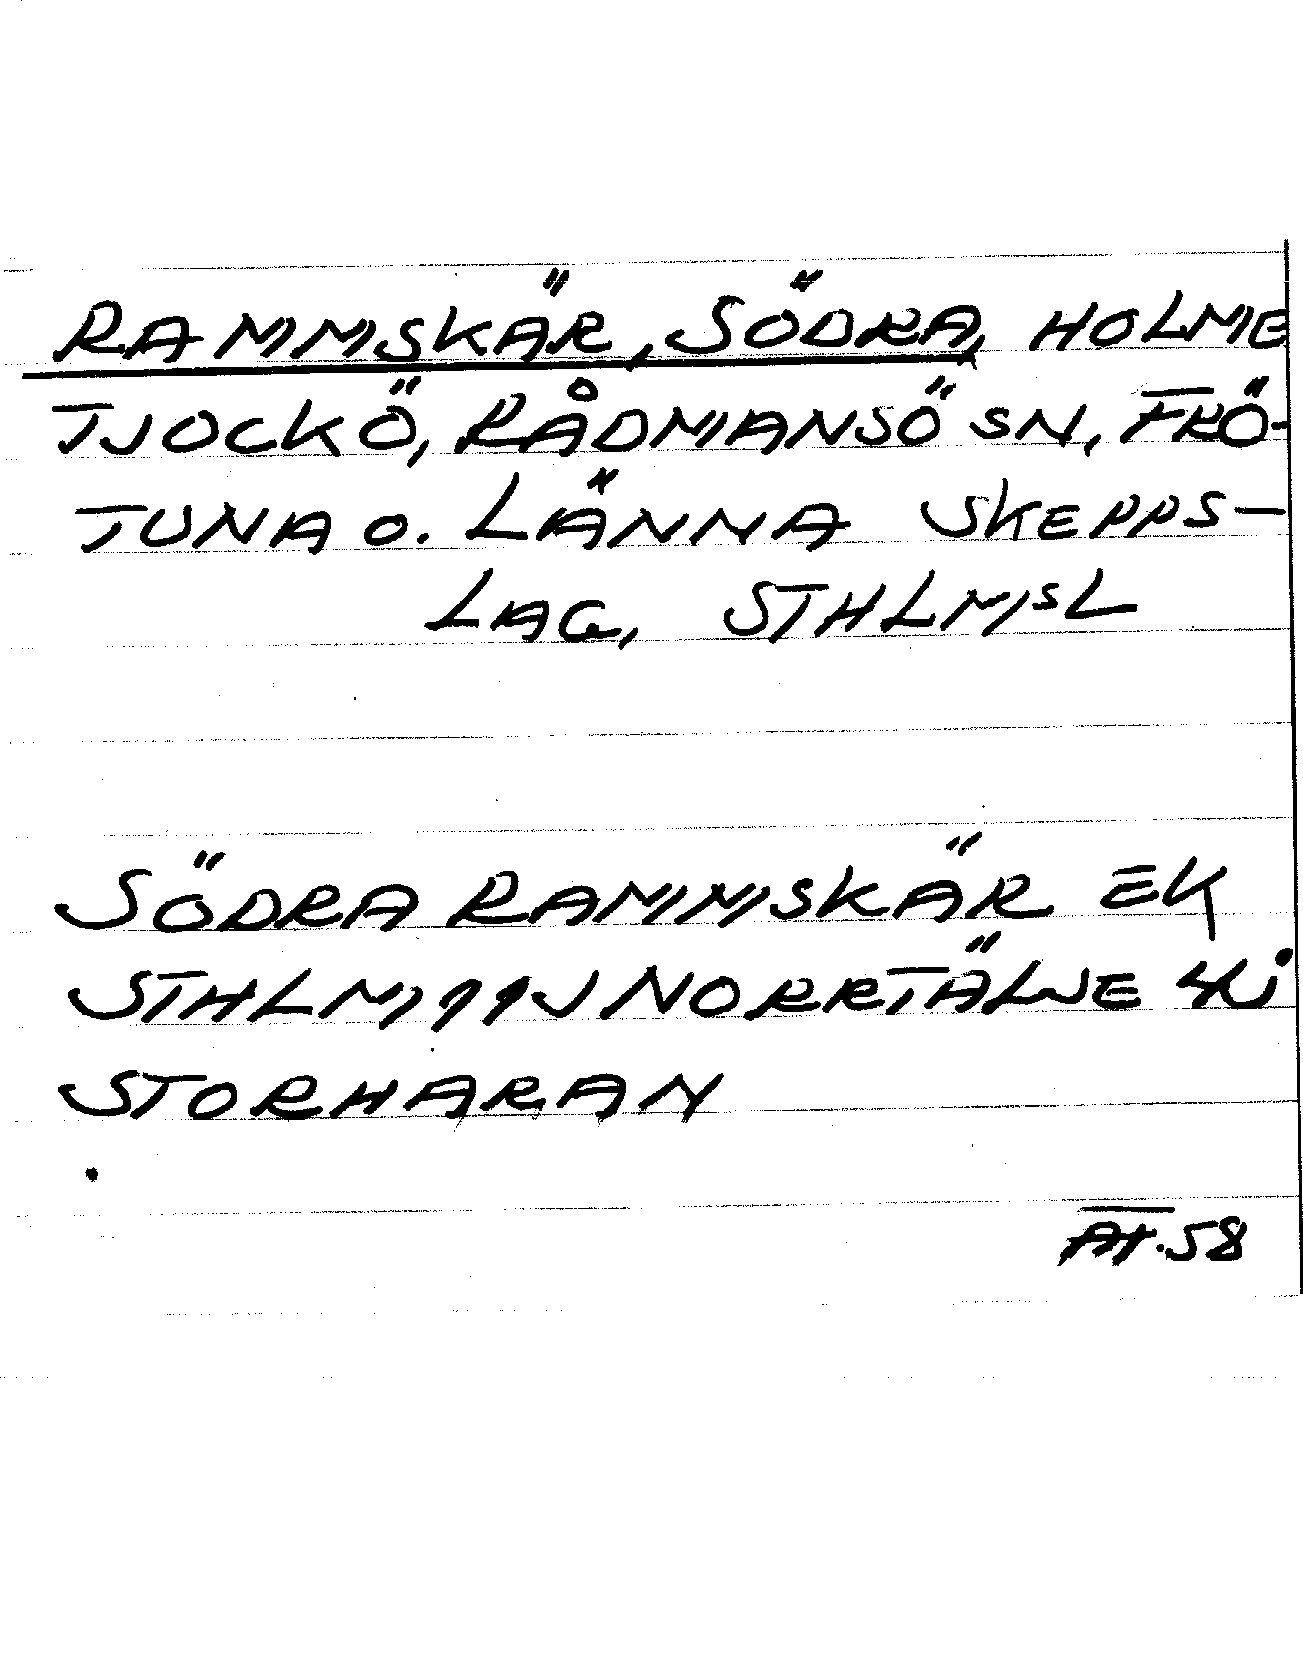 RAMMSKÄR, SÖDRA, HOLME
TJOCKÖ, RÅDMANSÖ SN, FRÖ-
TUNA O. LÄNNA SKEPPS-
LAG, STHLMSL
SÖDRA RAMMSKÄR EK
STHLM 11J NORRTÄLJE 4i
STORHARAN
AT.58